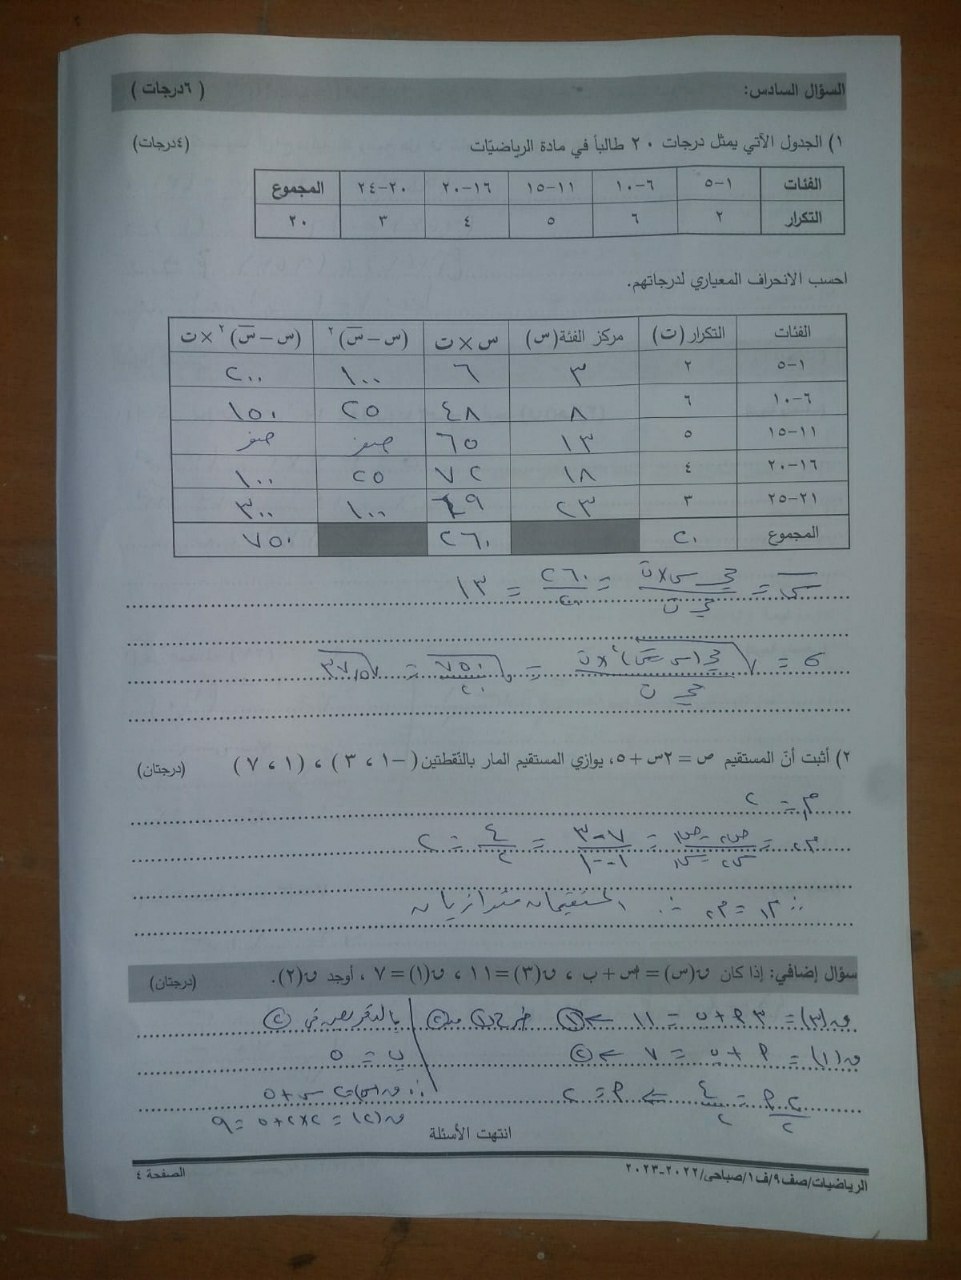 السؤال السادس: ( ٦درجات )
١) الجدول الآتي يمثل درجات ٢٠ طالباً في مادة الرياضيّات (٤درجات)
الفئات ١-٥ ٦-١٠ ١١-١٥ ١٦-٢٠ ٢٠-٢٤ المجموع
التكرار ٢ ٦ ٥ ٤ ٣ ٢٠
احسب الانحراف المعياري لدرجاتهم.
الفئات التكرار (ت) مركز الفئة(س) س×ت (س-س̅)٢ (س-س̅)٢×ت
١-٥ ٢ ٣ ٦ ١٠٠ ٢٠٠
٦-١٠ ٦ ٨ ٤٨ ٢٥ ١٥٠
١١-١٥ ٥ ١٣ ٦٥ صفر صفر
١٦-٢٠ ٤ ١٨ ٧٢ ٢٥ ١٠٠
٢١-٢٥ ٣ ٢٣ ٦٩ ١٠٠ ٣٠٠
المجموع ٢٠ ٢٦٠ ٧٥٠
س̅ = مجـ س×ت / مجـ ت = ٢٦٠/٢٠ = ١٣
σ = √(مجـ(س-س̅)٢×ت / مجـ ت) = √(٧٥٠/٢٠) = √٣٧,٥
٢) أثبت أنّ المستقيم ص = ٢س + ٥، يوازي المستقيم المار بالنّقطتين (-١ ، ٣) ، (١ ، ٧) (درجتان)
م١ = ٢
م٢ = ص٢-ص١ / س٢-س١ = ٧-٣ / ١--١ = ٤/٢ = ٢
∴ م١ = م٢ ∴ المستقيمان متوازيان
سؤال إضافي: إذا كان ق(س) = أس + ب ، ق(٣) = ١١ ، ق(١) = ٧ ، أوجد ق(٢). (درجتان)
ق(٣) = ٣أ + ب = ١١ ← ① طرح ① من ② بالتعويض في ②
ق(١) = أ + ب = ٧ ← ② ب = ٥
٢أ/٢ = ٤/٢ ← أ = ٢ ∴ ق(س) = ٢س + ٥
ق(٢) = ٢×٢ + ٥ = ٩
انتهت الأسئلة
الرياضيات/صف٩/ف١/صباحي/٢٠٢٢-٢٠٢٣ الصفحة ٤